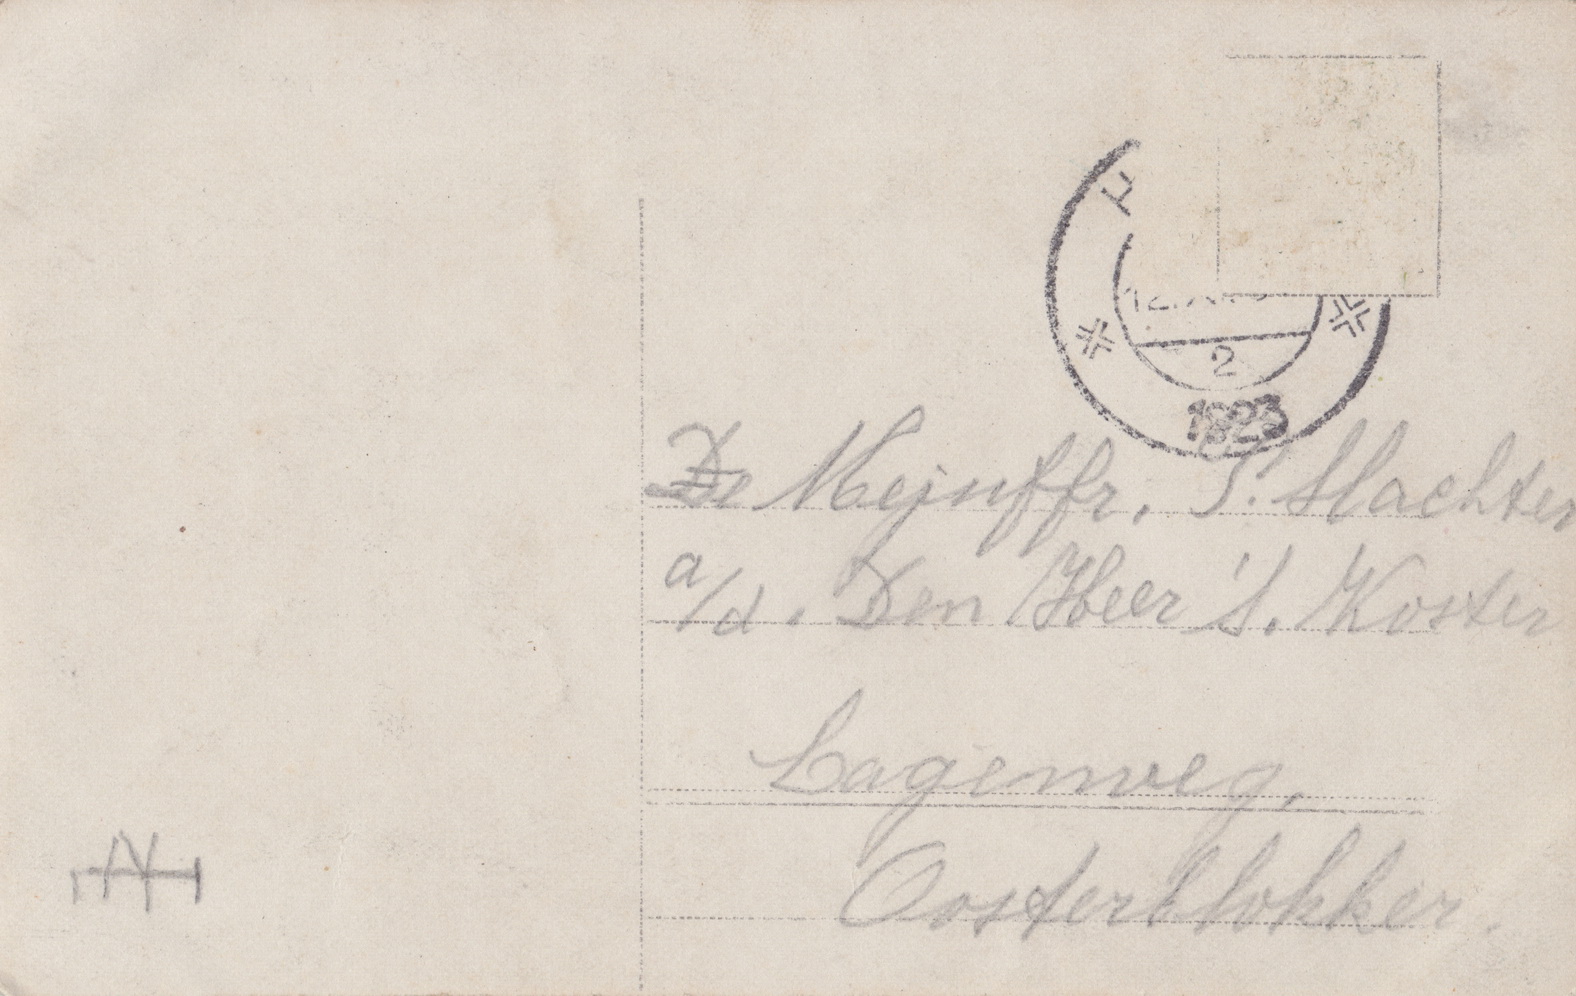 H
2
1923
De Mejuffr. S. Slachter
a/d. Den Heer S. Koster
Lagenweg,
Oosterblokker.